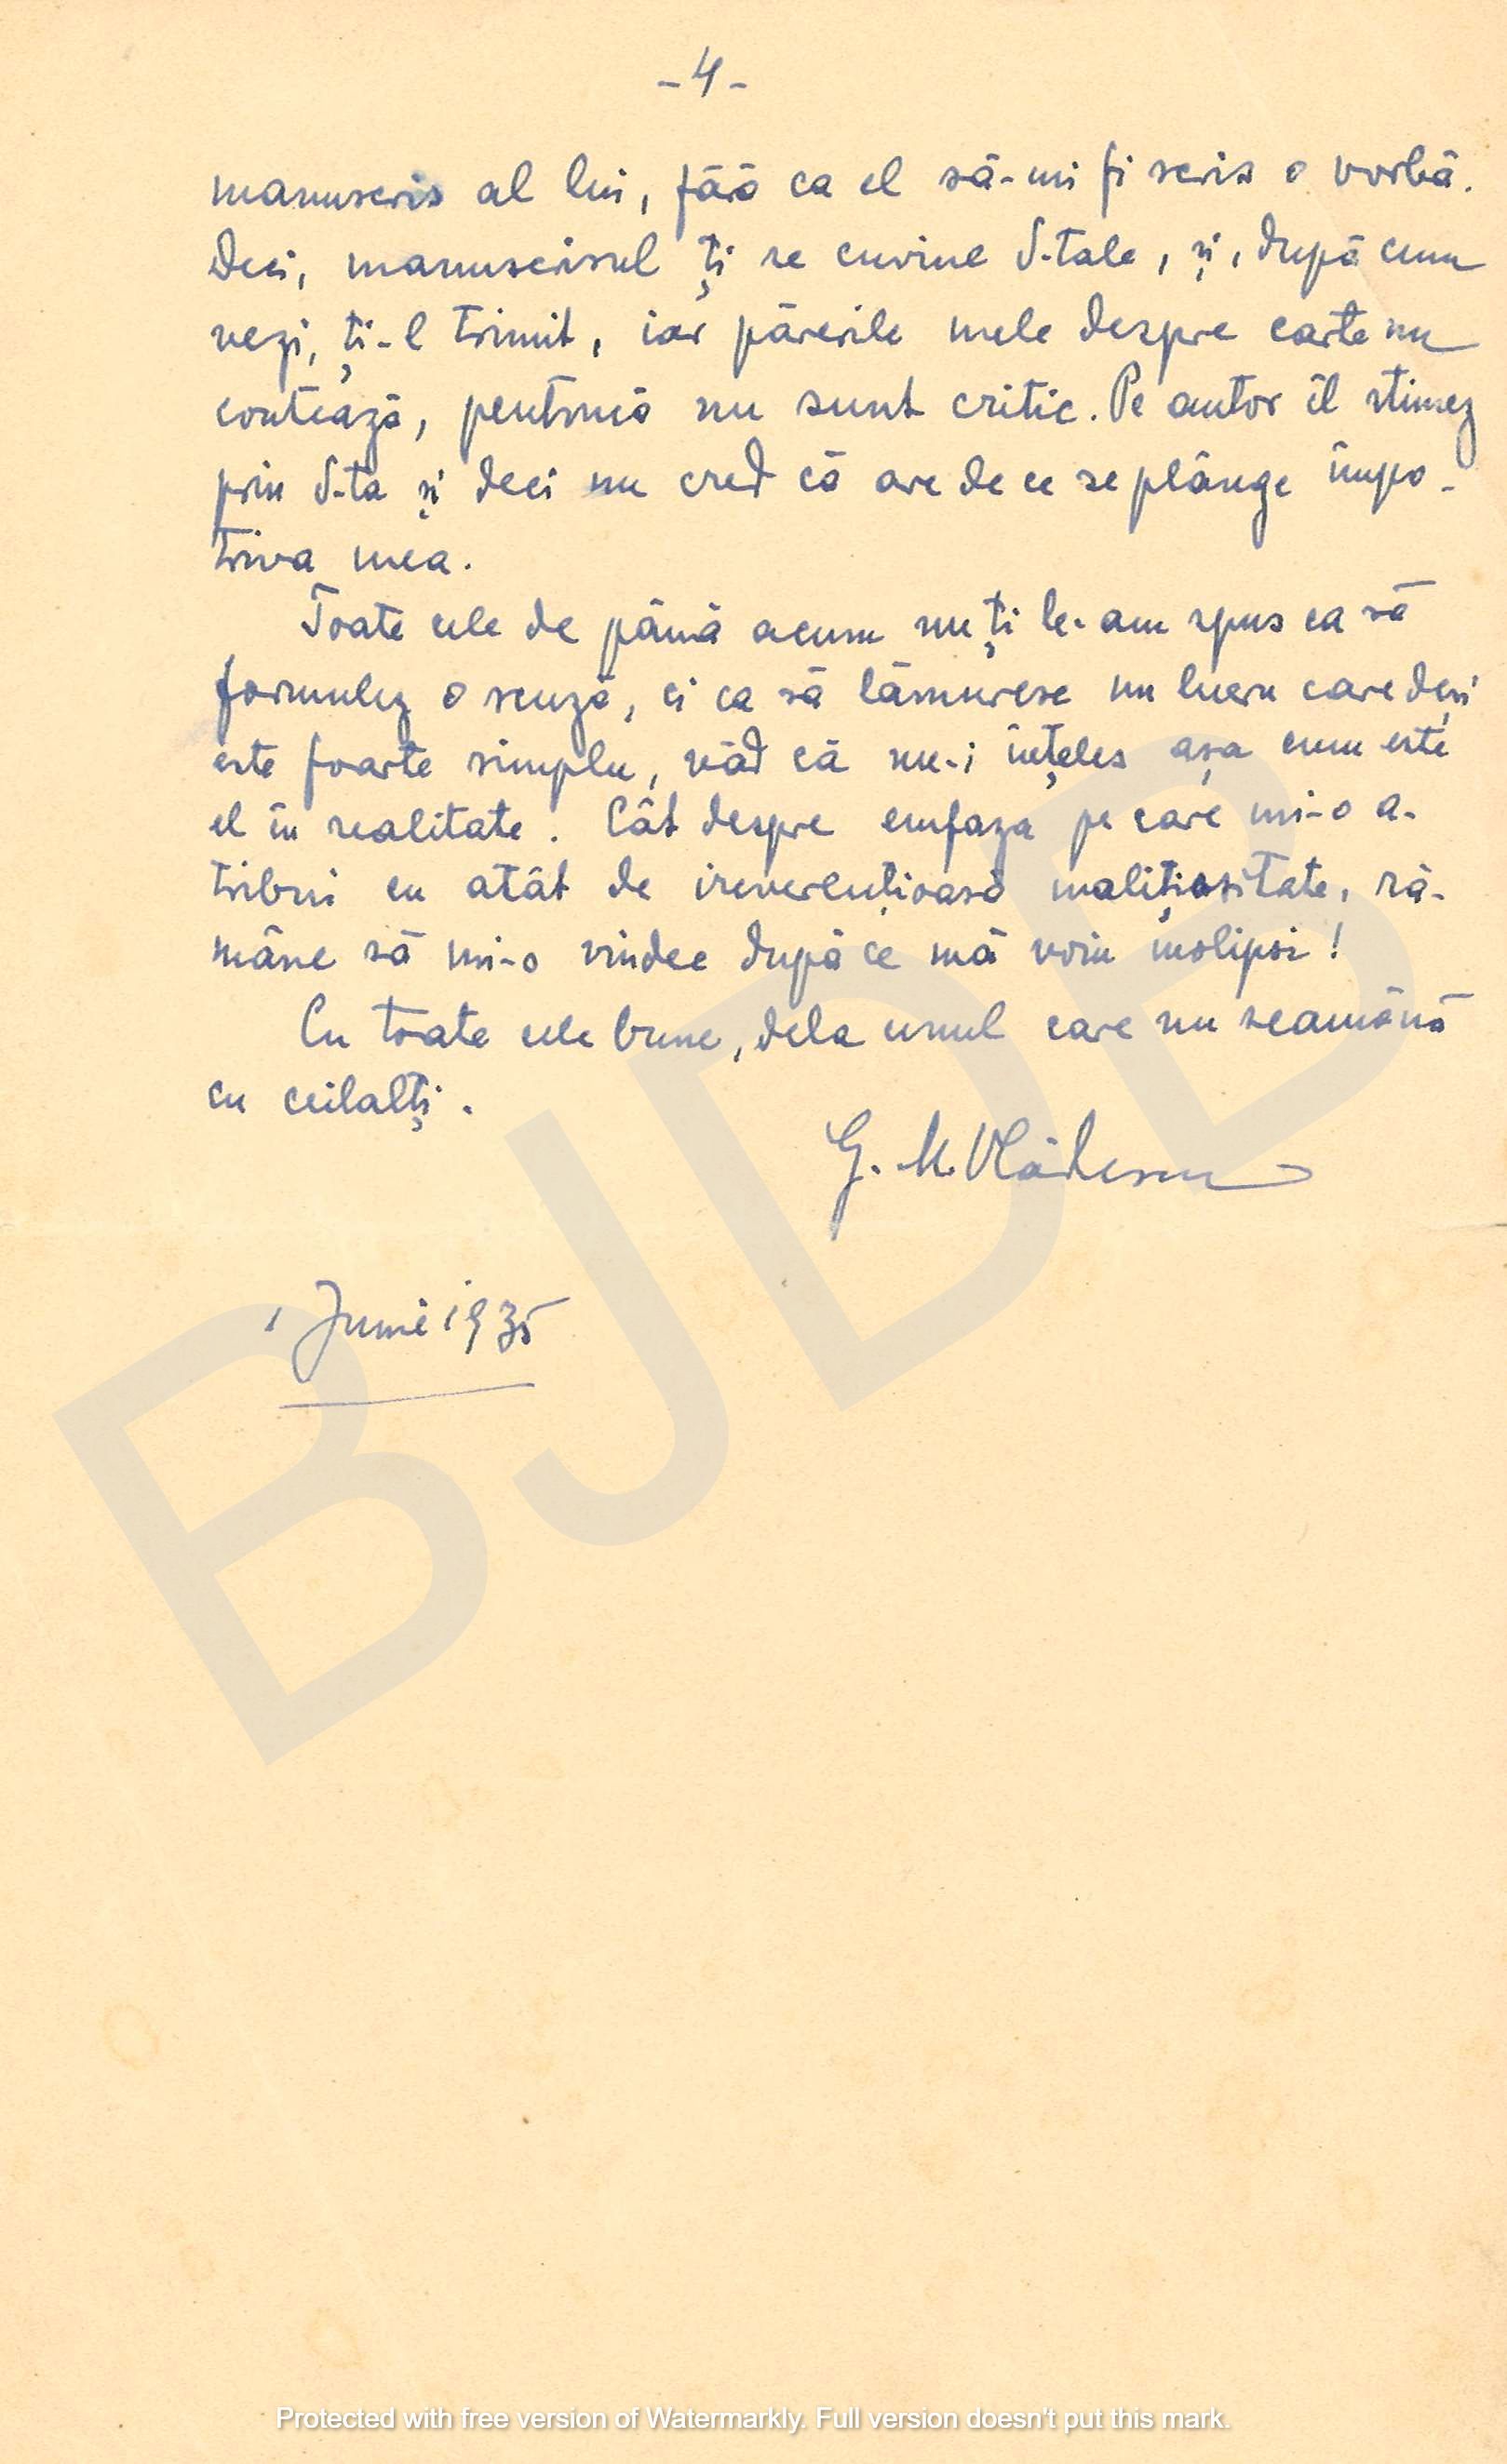 -4-
manuscris al lui, fără ca el să-mi fi scris o vorbă.
Deci, manuscrisul ți se cuvine d-tale, și, după cum
vezi, ți-l trimit, iar părerile mele despre carte nu
contează, pentrucă nu sunt critic. Pe autor îl stimez
prin d-ta și deci nu cred că are de ce se plânge împo-
triva mea.
Toate cele de până acum nu ți le-am spus ca să
formulez o scuză, ci ca să lămuresc un lucru care deși
este foarte simplu, văd că nu-i înțeles așa cum este
el în realitate. Cât despre emfaza pe care mi-o a-
tribui cu atât de ireverențioasă malițiositate, ră-
mâne să mi-o vindec după ce mă voiu molipsi!
Cu toate cele bune, dela unul care nu seamănă
cu ceilalți.
G. M. Vlădescu
1 Junie 1935
BJDB
Protected with free version of Watermarkly. Full version doesn't put this mark.